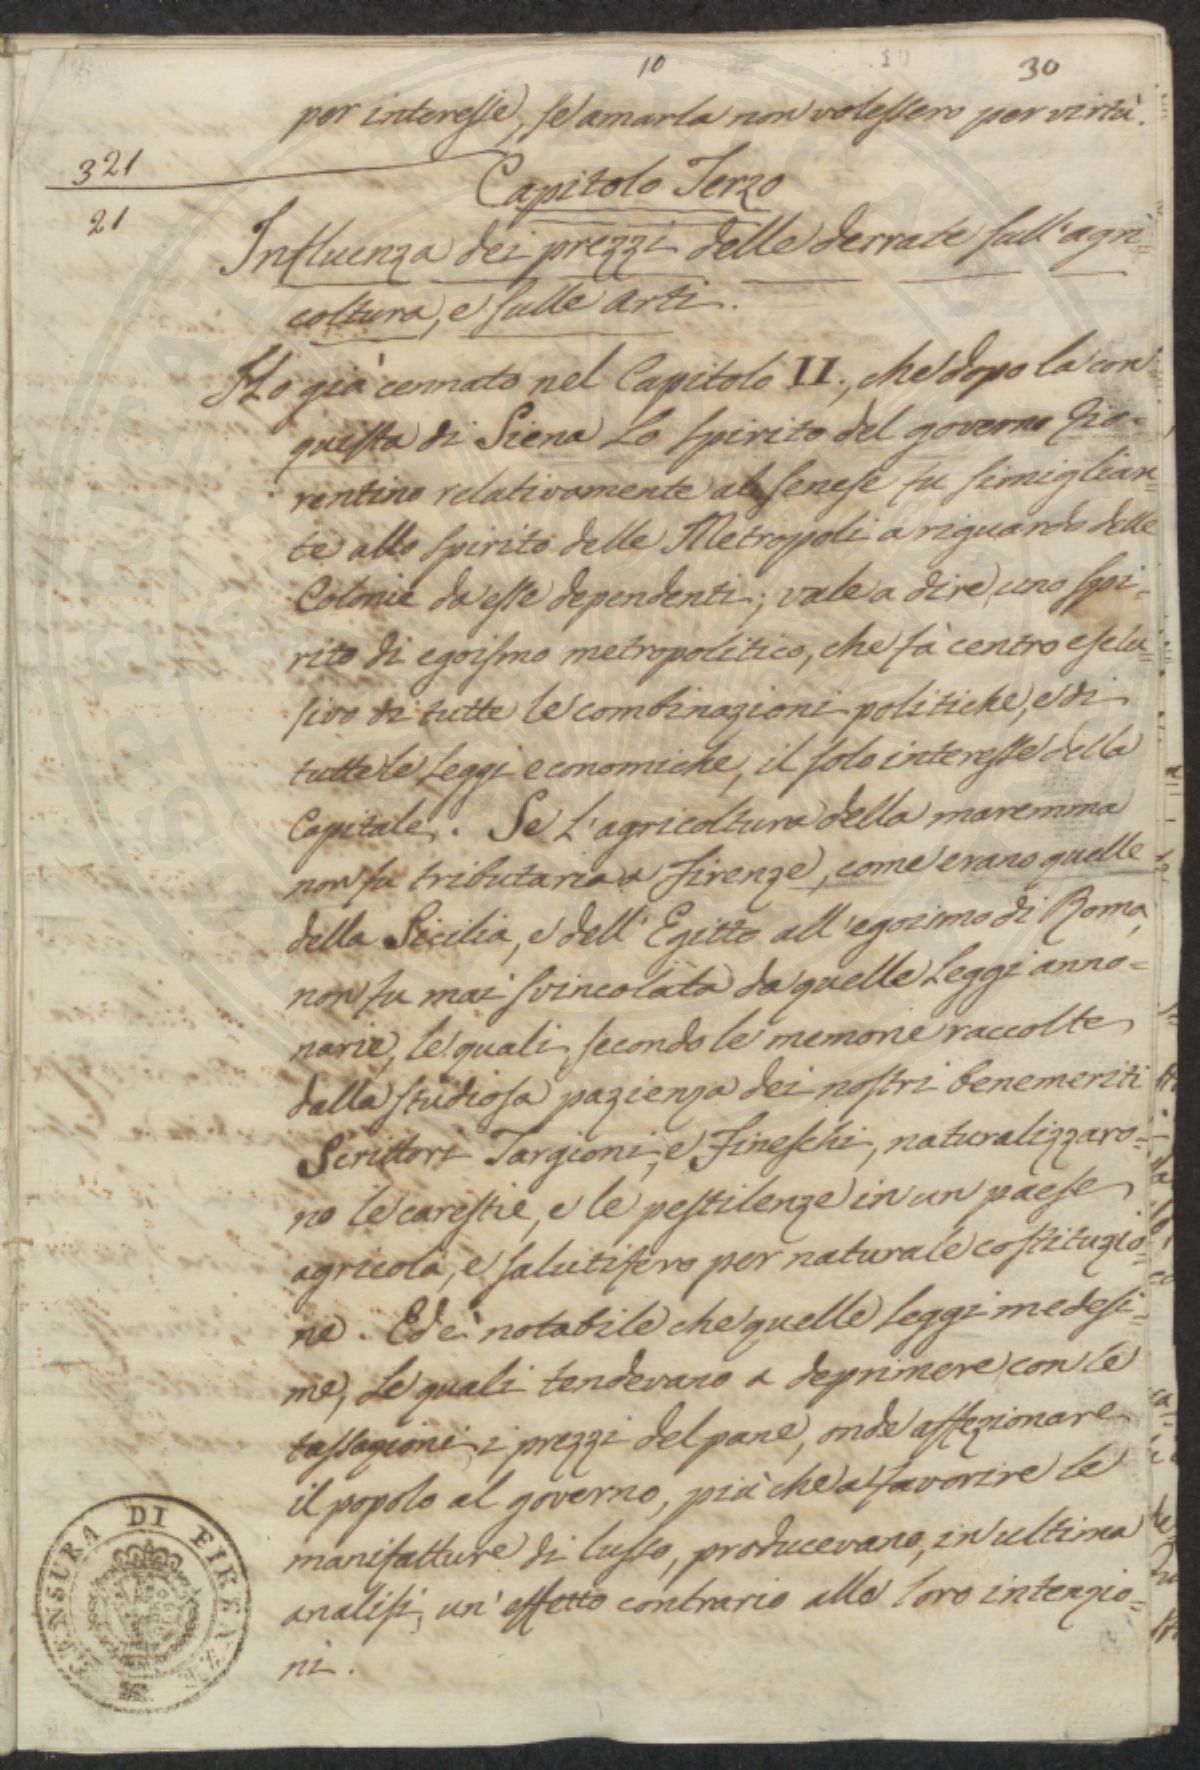 10
30
per interesse, se amarla non volessero per virtù.
321
21
Capitolo Terzo
Influenza dei prezzi delle derrate sull'agri=
coltura, e sulle arti.
Ho già cennato nel Capitolo II., che dopo la con
quista di Siena Lo spirito del governo Fio=
rentino relativamente al senese fu simiglian=
te allo spirito delle Metropoli a riguardo delle
Colonie da esse dependenti; vale a dire uno spi=
rito di egoismo metropolitico, che fà centro esclu=
sivo di tutte le combinazioni politiche, e di
tutte le Leggi economiche, il solo interesse della
Capitale. Se L'agricoltura della maremma
non fu tributaria a firenze, come erano quelle
della Sicilia, e dell'Egitto all'egoismo di Roma,
non fu mai svincolata da quelle Leggi anno=
narie, le quali secondo le memorie raccolte
dalla studiosa pazienza dei nostri benemeriti
Scrittori Targioni, e Fineschi, naturalizzaro=
no le carestie, e le pestilenze in un paese
agricola, e salutifero per naturale costituzio=
ne. Ed è notabile che quelle Leggi medesi=
me, Le quali tendevano a deprimere con le
tassazioni i prezzi del pane, onde affezionare
il popolo al governo, più che a favorire le
manifatture di lusso, producevano, in ultima
analisi, un'effetto contrario alle loro intenzio=
ni.
CENSURA DI FIRENZE